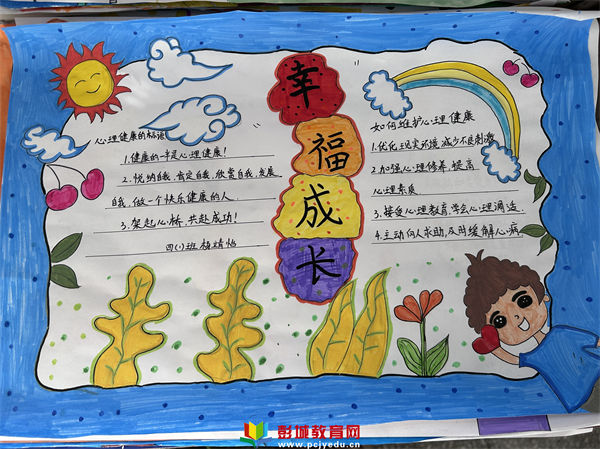 幸福成长
心理健康的标语
1.健康的一半是心理健康!
2.悦纳自我,肯定自我,欣赏自我,发展
自我,做一个快乐健康的人.
3.架起心桥,共赴成功!
四(1)班杨婧怡
如何维护心理健康
1.优化现实环境,减少不良刺激
2.加强心理修养,提高
心理素质
3.接受心理教育,学会心理调适.
4.主动向人求助,及时缓解心病
彭城教育网
www.pcjyedu.cn